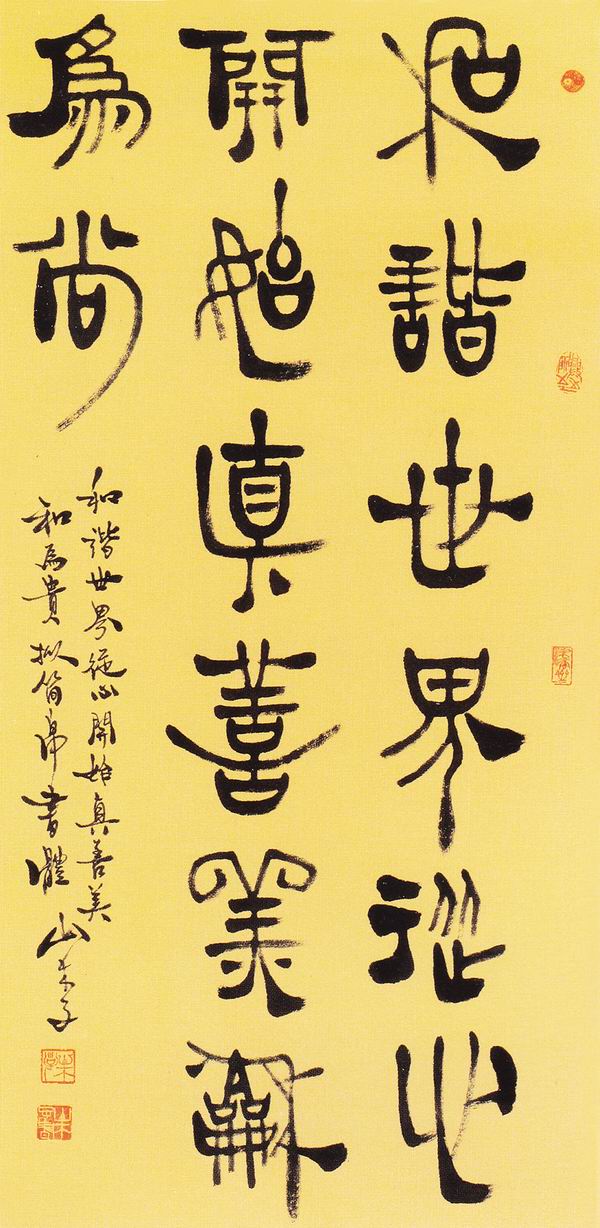 和諧世界從心
開始真善美龢
爲尚
和諧世界從心開始真善美
和爲貴擬簡帛書體